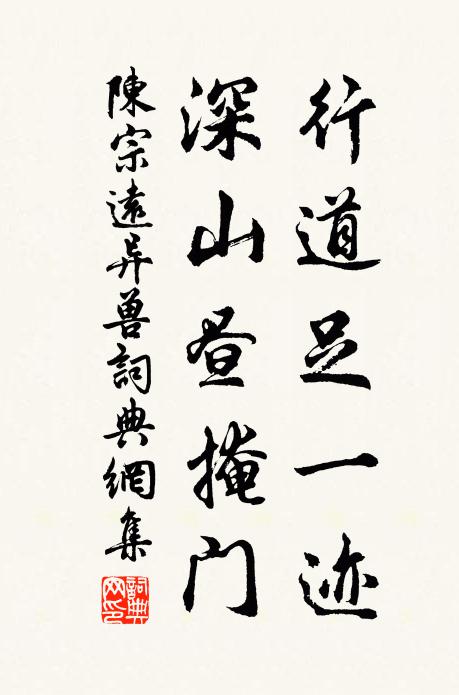 行道足一迹
深山昼掩门
陳宗遠异兽詞典網集
詞典
网印